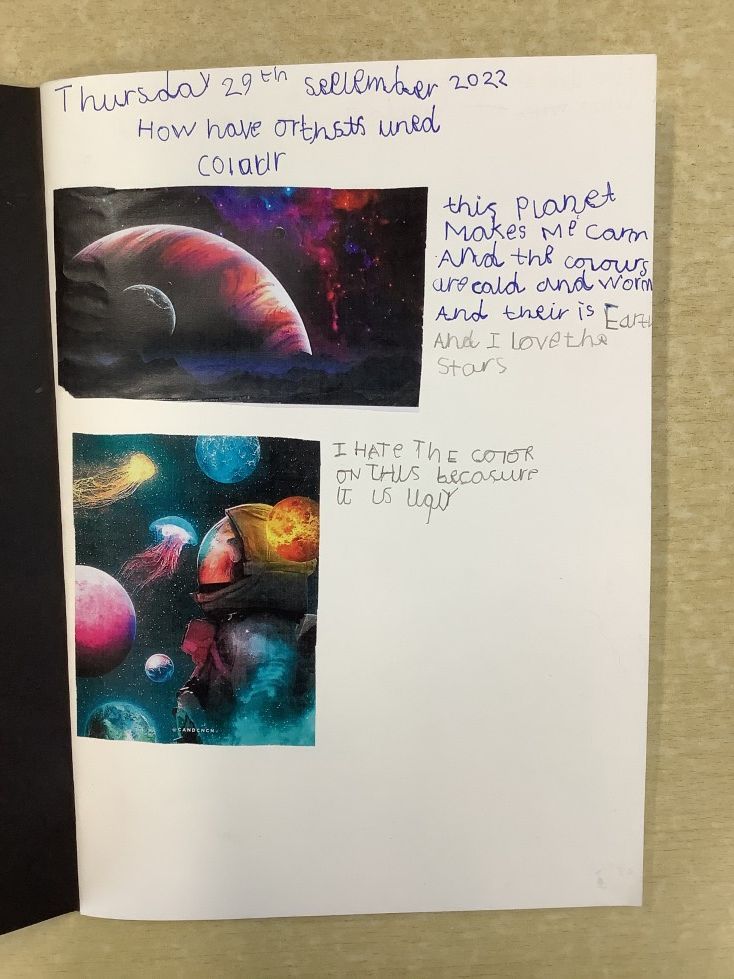 Thursday 29th sellember 2022
How have orthsts uned
Colaur
this Planet
Makes Me Camn
And the corows
are cald and worm
And their is Earth
And I love the
Stars
I HATE THE COTOR
ON THUS becasure
It US UgiY
@CANDCNCN.